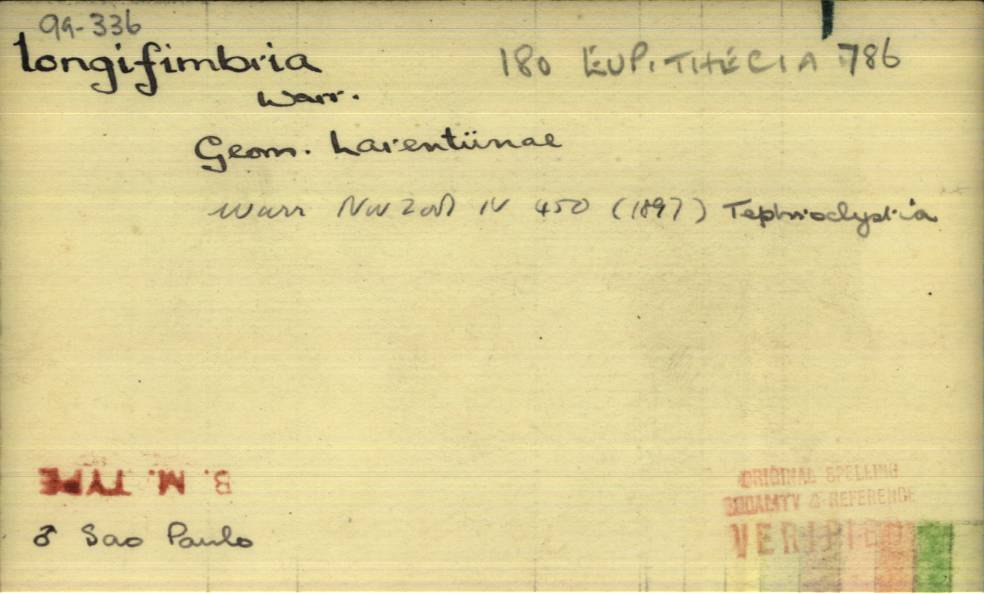 99-336
longifimbria 180 EUPITHECIA 786
Warr.
Geom. Larentiinae
Warr Nov Zool IV 450 (1897) Tephroclystia
B. M. TYPE
♂ Sao Paulo
ORIGINAL SPELLING
LOCALITY & REFERENCE
VERIFIED